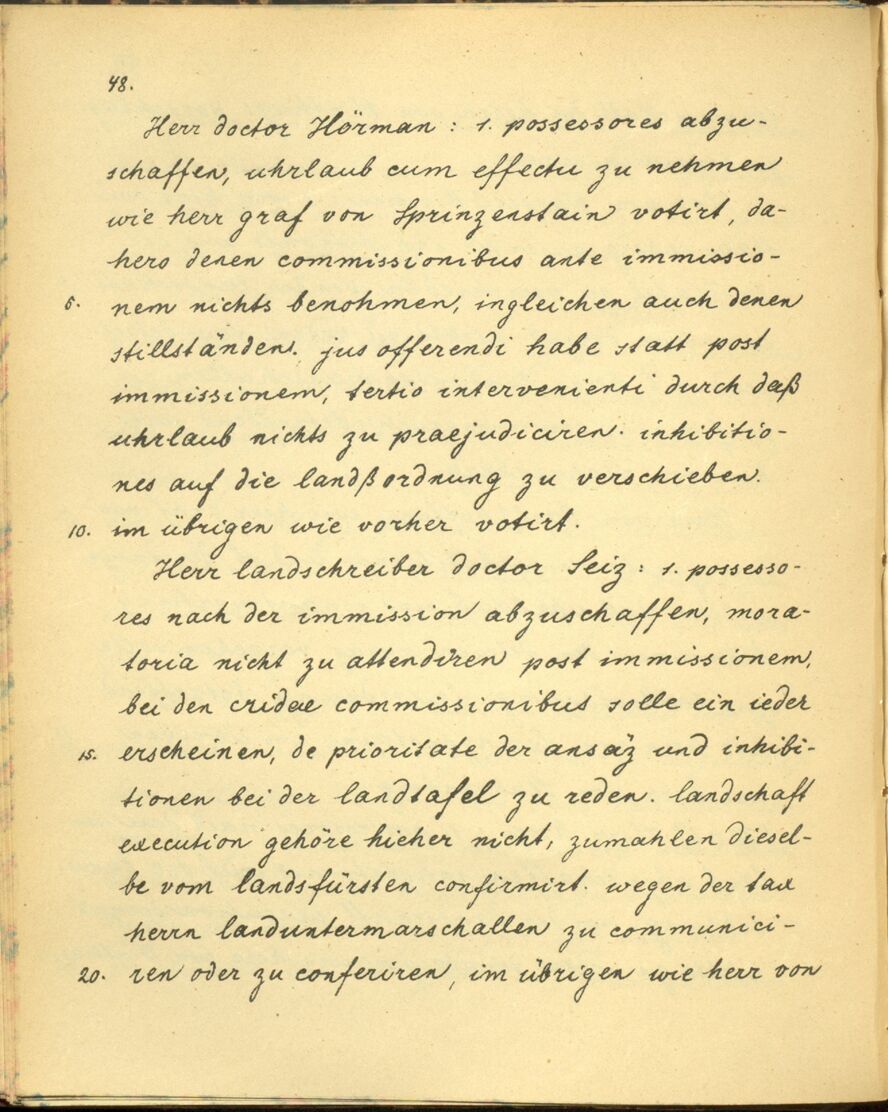 48.
Herr doctor Hörman : 1. possessores abzu-
schaffen, uhrlaub cum effectu zu nehmen
wie herr graf von Sprinzenstain votirt, da-
hero denen commissionibus ante immissio-
5. nem nichts benohmen, ingleichen auch denen
stillständen. jus offerendi habe statt post
immissionem, tertio intervenienti durch daß
uhrlaub nichts zu praejudiciren. inhibitio-
nes auf die landßordnung zu verschieben.
10. im übrigen wie vorher votirt.
Herr landschreiber doctor Seiz : 1. possesso-
res nach der immission abzuschaffen, mora-
toria nicht zu attendiren post immissionem,
bei den cridae commissionibus solle ein ieder
15. erscheinen, de prioritate der ansäz und inhibi-
tionen bei der landtafel zu reden. landschaft
execution gehöre hieher nicht, zumahlen diesel-
be vom landsfürsten confirmirt. wegen der tax
herrn landuntermarschallen zu communici-
20. ren oder zu conferiren, im übrigen wie herr von